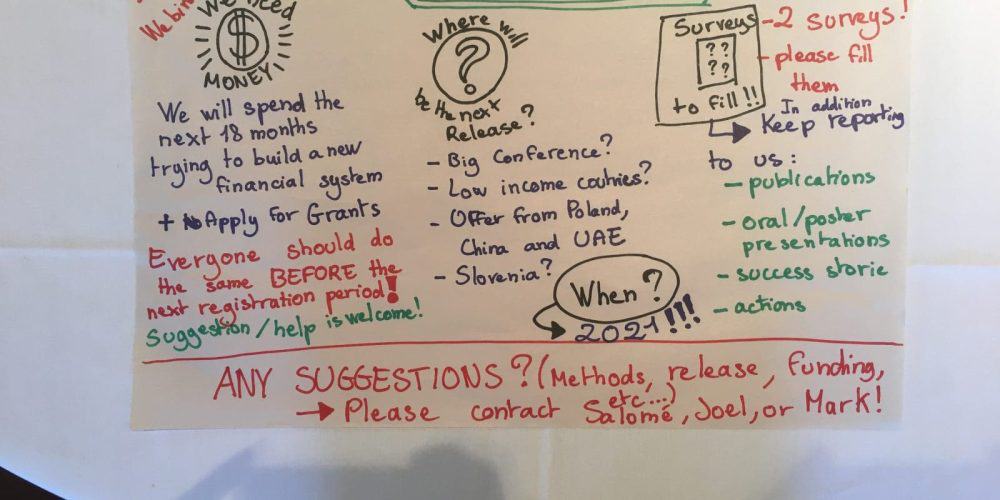 We need
MONEY
We will spend the
next 18 months
trying to build a new
financial system
+ Apply For Grants
Everyone should do
the same BEFORE the
next registration period!
Suggestion/help is welcome!
Where will
?
be the next
Release?
- Big Conference?
- Low income coutries?
- Offer from Poland,
China and UAE
- Slovenia?
When?
2021!!!
Surveys
? ?
? ?
to fill!!
- 2 surveys!
- please fill
them
In addition
Keep reporting
to us:
- publications
- oral/poster
presentations
- success storie
- actions
ANY SUGGESTIONS? (Methods, release, funding,
etc...)
→ Please contact Salomé, Joel, or Mark!